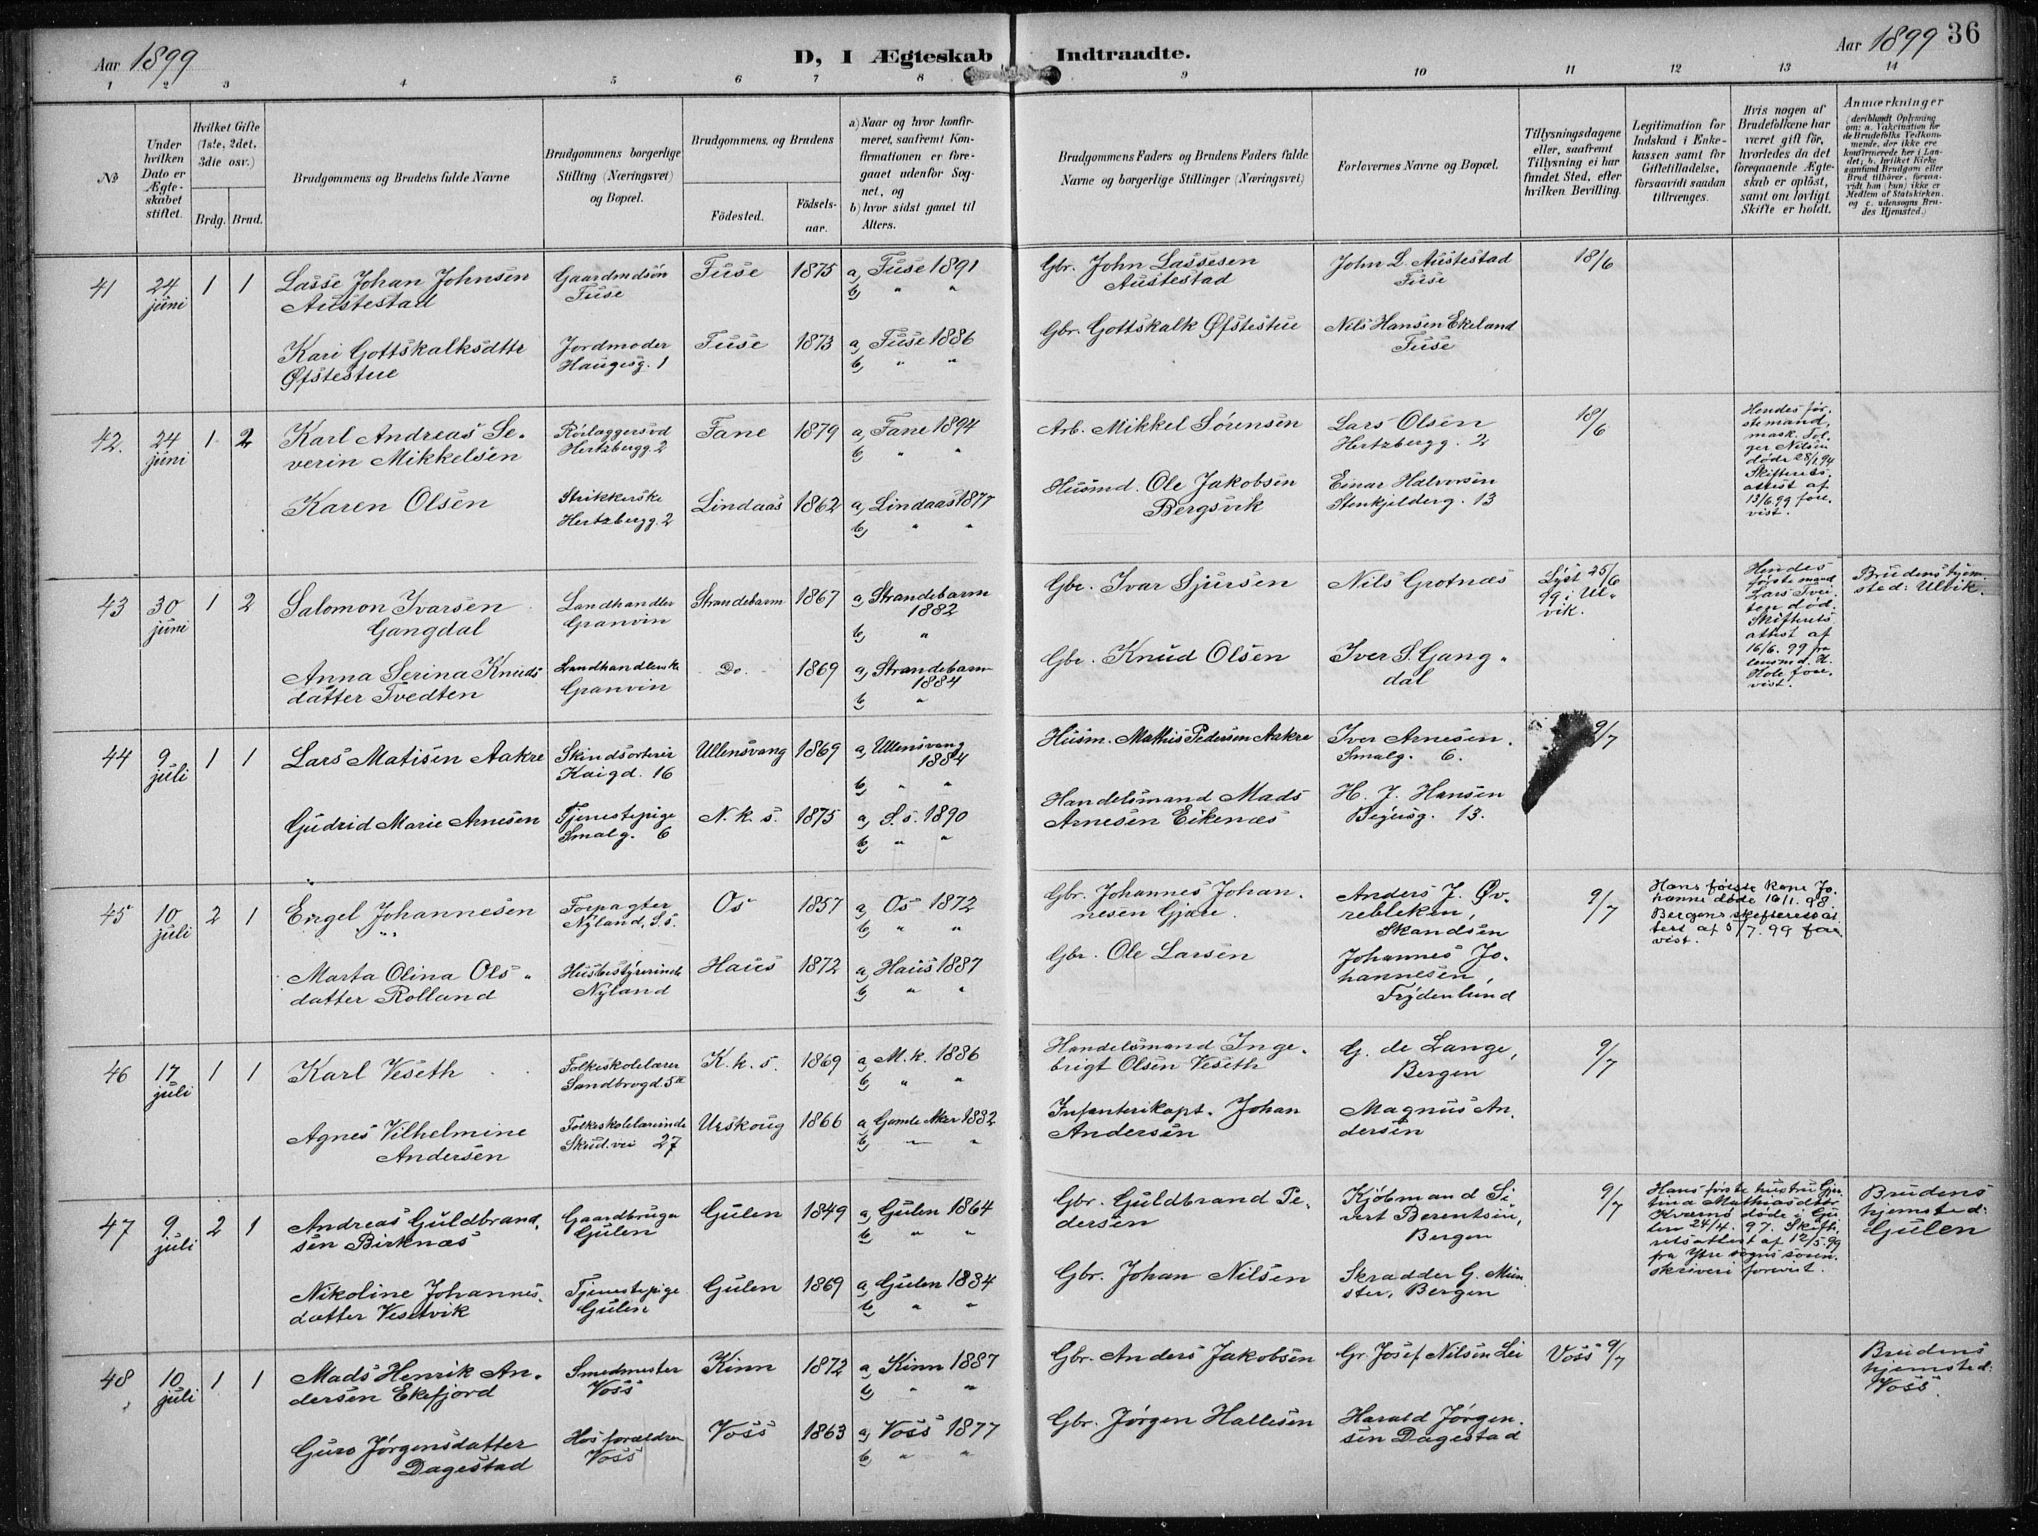 Aar 1899
D, I Ægteskab Indtraadte.
Aar 1899 36
1 2 3 4 5 6 7 8 9 10 11 12 13 14
No
Under hvilken Dato er Ægteskabet stiftet.
Hvilket Gifte (1ste, 2det, 3die osv.)
Brdg. Brud.
Brudgommens og Brudens fulde Navne
Brudgommens borgerlige Stilling (Næringsvei) og Bopæl.
Brudgommens og Brudens
Födested.
Födselsaar.
a) Naar og hvor konfirmeret, saafremt Konfirmationen er foregaaet udenfor Sognet, og
b) hvor sidst gaaet til Alters.
Brudgommens Faders og Brudens Faders fulde Navne og borgerlige Stillinger (Næringsvei)
Forlovernes Navne og Bopæl.
Tillysningsdagene eller, saafremt Tillysning ei har fundet Sted, efter hvilken Bevilling.
Legitimation for Indskud i Enkekassen samt for Giftetilladelse, forsaavidt saadan tiltrænges.
Hvis nogen af Brudefolkene har været gift før, hvorledes da det foregaaende Ægteskab er oplöst, samt om lovligt Skifte er holdt.
Anmærkninger
(deriblandt Oplysning om: a. Vakcination for de Brudefolks Vedkommende, der ikke ere konfirmerede her i Landet; b. hvilket Kirkesamfund Brudgom eller Brud tilhører, forsaavidt han (hun) ikke er Medlem af Statskirken, og c. udensogns Brudes Hjemsted.)
41 24 juni 1 1 Lasse Johan Johnsen Austestad
Gaardmdsøn Fuse
Fuse 1875 a, Fuse 1891
b, " "
Gbr. John Lassesen Austestad
John L. Austestad Fuse
18/6
Kari Gottskalksdttr Øfstestue
Jordmoder Haugesg. 1
Fuse 1873 a, Fuse 1886
b, " "
Gbr. Gottskalk Øfstestue
Nils Hansen Ekeland Fuse
42. 24 juni 1 2 Karl Andreas Severin Mikkelsen
Rörlæggersvd Hertzbergg. 2
Fane 1879 a, Fane 1894
b, " "
Arb. Mikkel Sørensen
Lars Olsen Hertzbergg. 2
18/6
Hendes førstemand, mask. Tolger Nilsen døde 28/1 94 Skifteretsattest af 13/6.99 forevist.
Karen Olsen
Strikkerske Hertzbergg. 2
Lindaas 1862 a, Lindaas 1877
b, " "
Husmd. Ole Jakobsen Bergsvik
Einar Halvorsen Stenkjelderg. 13
43 30 juni 1 2 Salomon Ivarsen Gangdal
Landhandler Granvin
Strandebarm 1867 a, Strandebarm 1882
b, "
Gbr. Ivar Sjursen
Nils Grotnæs
Lyst 25/6 99 i Ulvik.
Hendes første mand Lars Tveiten død. Skifteretsattest af 16/6. 99 fra lensmd. H. Hole forevist.
Brudens hjemsted: Ulvik.
Anna Serina Knudsdatter Tvedten
Landhandlerske Granvin
Do. 1869 a, Strandebarm 1884
b, "
Gbr. Knud Olsen
Iver S. Gangdal
44 9 juli 1 1 Lars Matisen Aakre
Skindsorterer Kaigd. 16
Ullensvang 1869 a, Ullensvang 1884
b, " "
Husm. Mathis Pedersen Aakre
Iver Arnesen. Smalg. 6.
9/7
Gudrid Marie Arnesen
Tjenestepige Smalg. 6
N. k. s. 1875 a, S. s. 1890
b, " "
Handelsmand Mads Arnesen Eikenæs
H. J. Hansen 13.
45 10 juli 2 1 Engel Johannesen
Forpagter Nyland, S. s.
Os 1857 a, Os 1872
b, " "
Gbr. Johannes Johannesen Gjære.
Anders J. Øvrebleken, Skandsen
9/7
Hans første kone Johanne døde 16/1. 98. Bergens skifteretsattest af 5/7. 99 forevist.
Marta Olina Olsdatter Rolland
Husbestyrerinde Nyland
Haus 1872 a, Haus 1887
b, " "
Gbr. Ole Larsen
Johannes Johannesen, Frydenlund
46 17 juli 1 1 Karl Veseth
Folkeskolelærer Sandbrogd. 5
K. k. s. 1869 a, M. k. 1886
b, " "
Handelsmand Ingebrigt Olsen Veseth
G. de Lange, Bergen
9/7
Agnes Vilhelmine Andersen
Folkeskolelærerinde Skud.vei 27
Urskoug 1866 a, Gamle Aker 1882
b, " "
Infanterikapt. Johan Andersen
Magnus Andersen
47 9 juli 2 1 Andreas Guldbrandsen Birknæs
Gaardbruger Gulen
Gulen 1849 a, Gulen 1864
b, " "
Gbr. Guldbrand Pedersen
Kjøbmand Sivert Berentsen, Bergen
9/7
Hans første hustru Gjertine Mathiasdtter Kværnø døde i Gulen 24/4. 97. Skifteretsattest af 12/5.99 fra Ytre sogns sorenskriveri forevist.
Brudens hjemsted: Gulen
Nikoline Johannesdatter Vesetvik
Tjenestepige Gulen
Gulen 1869 a, Gulen 1884
b, " "
Gbr. Johan Nilsen
Skrædder G. Münster, Bergen
48 10 juli 1 1 Mads Henrik Andersen Ekefjord
Smedmester Voss
Kinn 1872 a, Kinn 1887
b, " "
Gbr. Anders Jakobsen
Gr. Josef Nilsen Lei
Voss 9/7
Brudens hjemsted: Voss.
Guro Jørgensdatter Dagestad
Hos forældre Voss
Voss 1863 a, Voss 1877
b, " "
Gbr. Jørgen Hallesen
Harald Jørgensen Dagestad